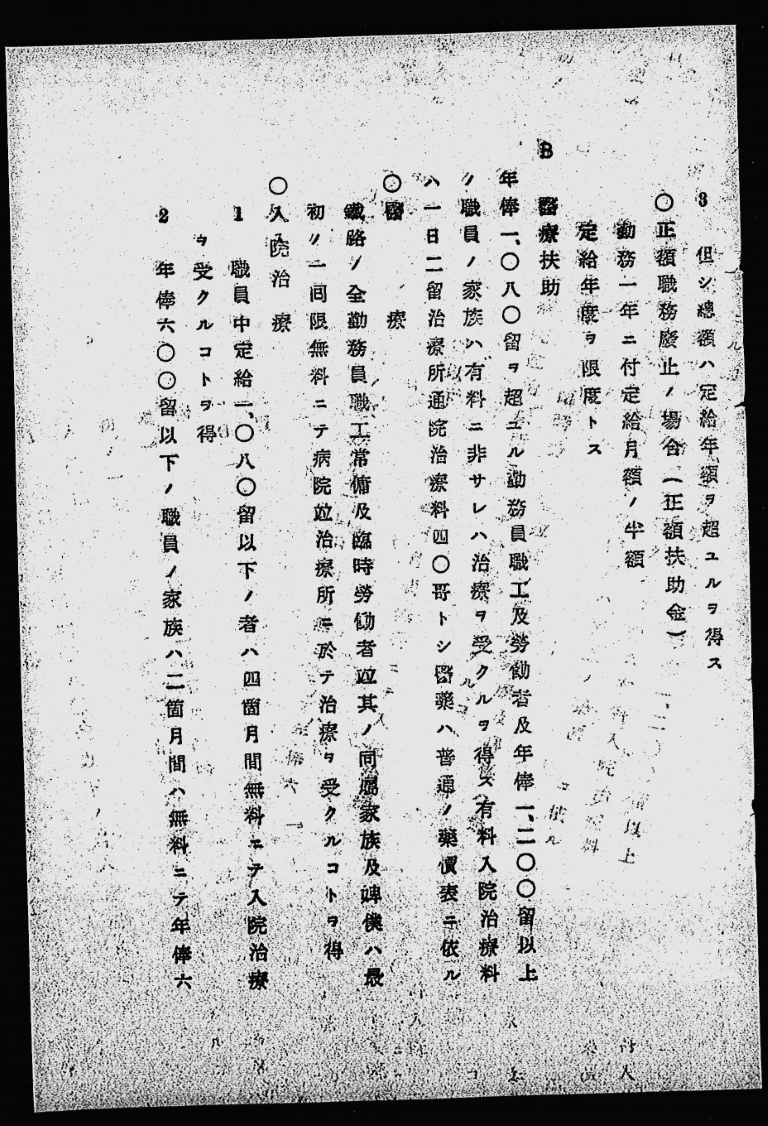 3 但シ總額ハ定給年額ヲ超ユルヲ得ス
〇正額職務廢止ノ場合(正額扶助金)
勤務一年ニ付定給月額ノ半額
定給年度ヲ限度トス
B 醫療扶助
年俸一、〇八〇留ヲ超ユル勤務員職工及勞働者及年俸一、二〇〇留以上
ノ職員ノ家族ハ有料ニ非サレハ治療ヲ受クルヲ得ス有料入院治療料
ハ一日二留治療所通院治療料四〇哥トシ醫藥ハ普通ノ藥價表ニ依ル
〇醫療
鐵路ノ全勤務員職工常傭及臨時勞働者竝其ノ同居家族及婢僕ハ最
初ノ一回限無料ニテ病院竝治療所ニ於テ治療ヲ受クルコトヲ得
〇入院治療
1 職員中定給一、〇八〇留以下ノ者ハ四箇月間無料ニテ入院治療
ヲ受クルコトヲ得
2 年俸六〇〇留以下ノ職員ノ家族ハ二箇月間ハ無料ニテ年俸六